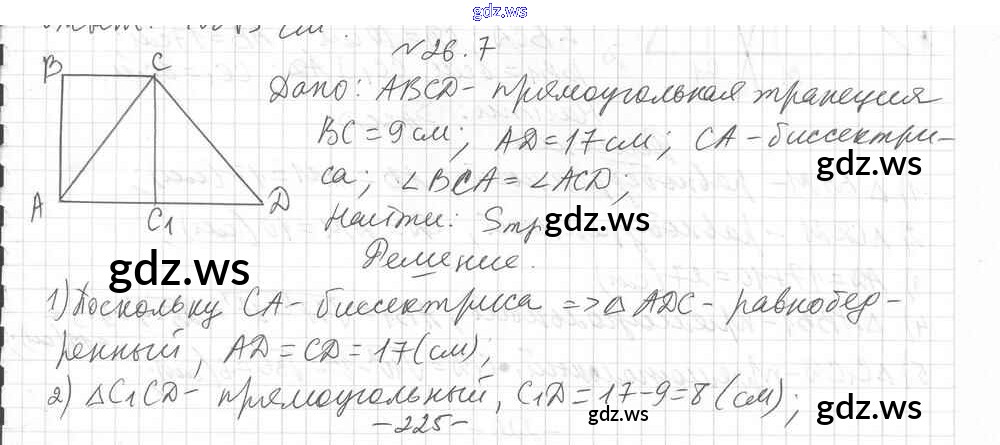 gdz.ws
№26.7
B C
Дано: ABCD - прямоугольная трапеция
BC = 9 см; AD = 17 см; CA - биссектри-
gdz.ws
са; ∠BCA = ∠ACD;
A C₁ D
Найти: Sтр
gdz.ws
Решение.
gdz.ws
1) Поскольку CA - биссектриса => △ADC - равнобед-
ренный, AD = CD = 17 (см);
2) △C₁CD - прямоугольный, C₁D = 17 - 9 = 8 (см);
gdz.ws
gdz.ws
- 225 -